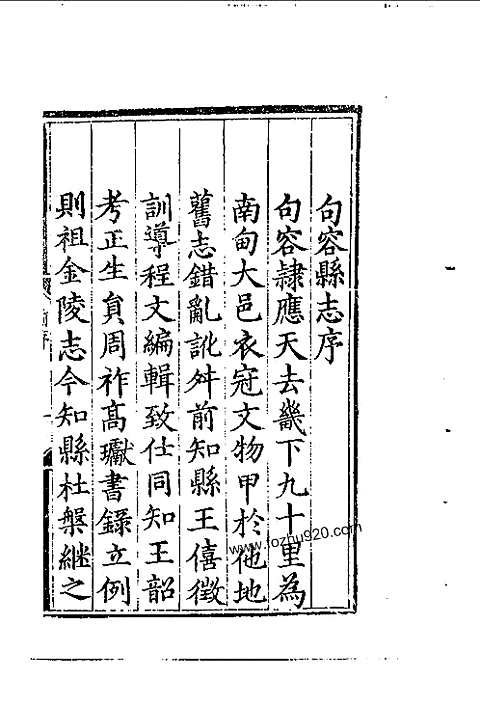 句容縣志序
句容隷應天去畿下九十里為
南甸大邑衣冠文物甲於他地
舊志錯亂訛舛前知縣王僖徵
訓導程文編輯致仕同知王韶
考正生員周祚高瓛書錄立例
則祖金陵志今知縣杜槃継之
www.fozhu920.com